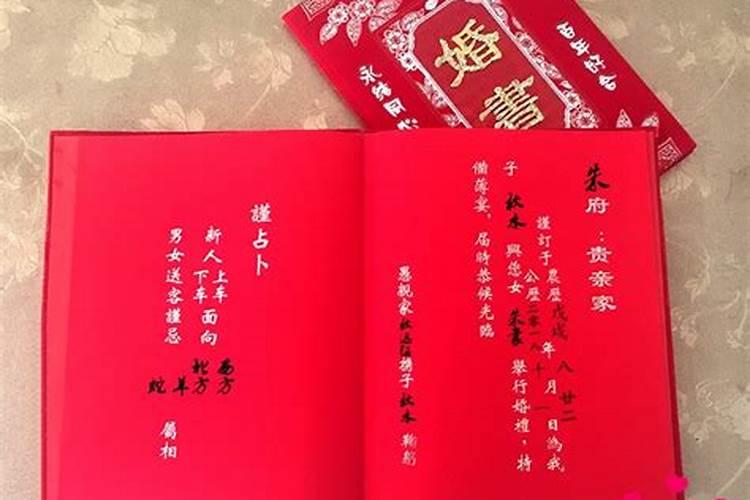 婚書
百年好合
永结同心
朱府：贵亲家
謹訂于農歷戊戌年八月廿二日為我
公歷二零一八 十 一
子 秋木 與您女 朱 舉行婚禮，特
備薄宴，届時恭候光臨
愚親家 秋 携子 秋木 鞠躬
謹占卜
新人上车 西方
下车面向 北方
男女送客謹忌 羊 蛇
屬相